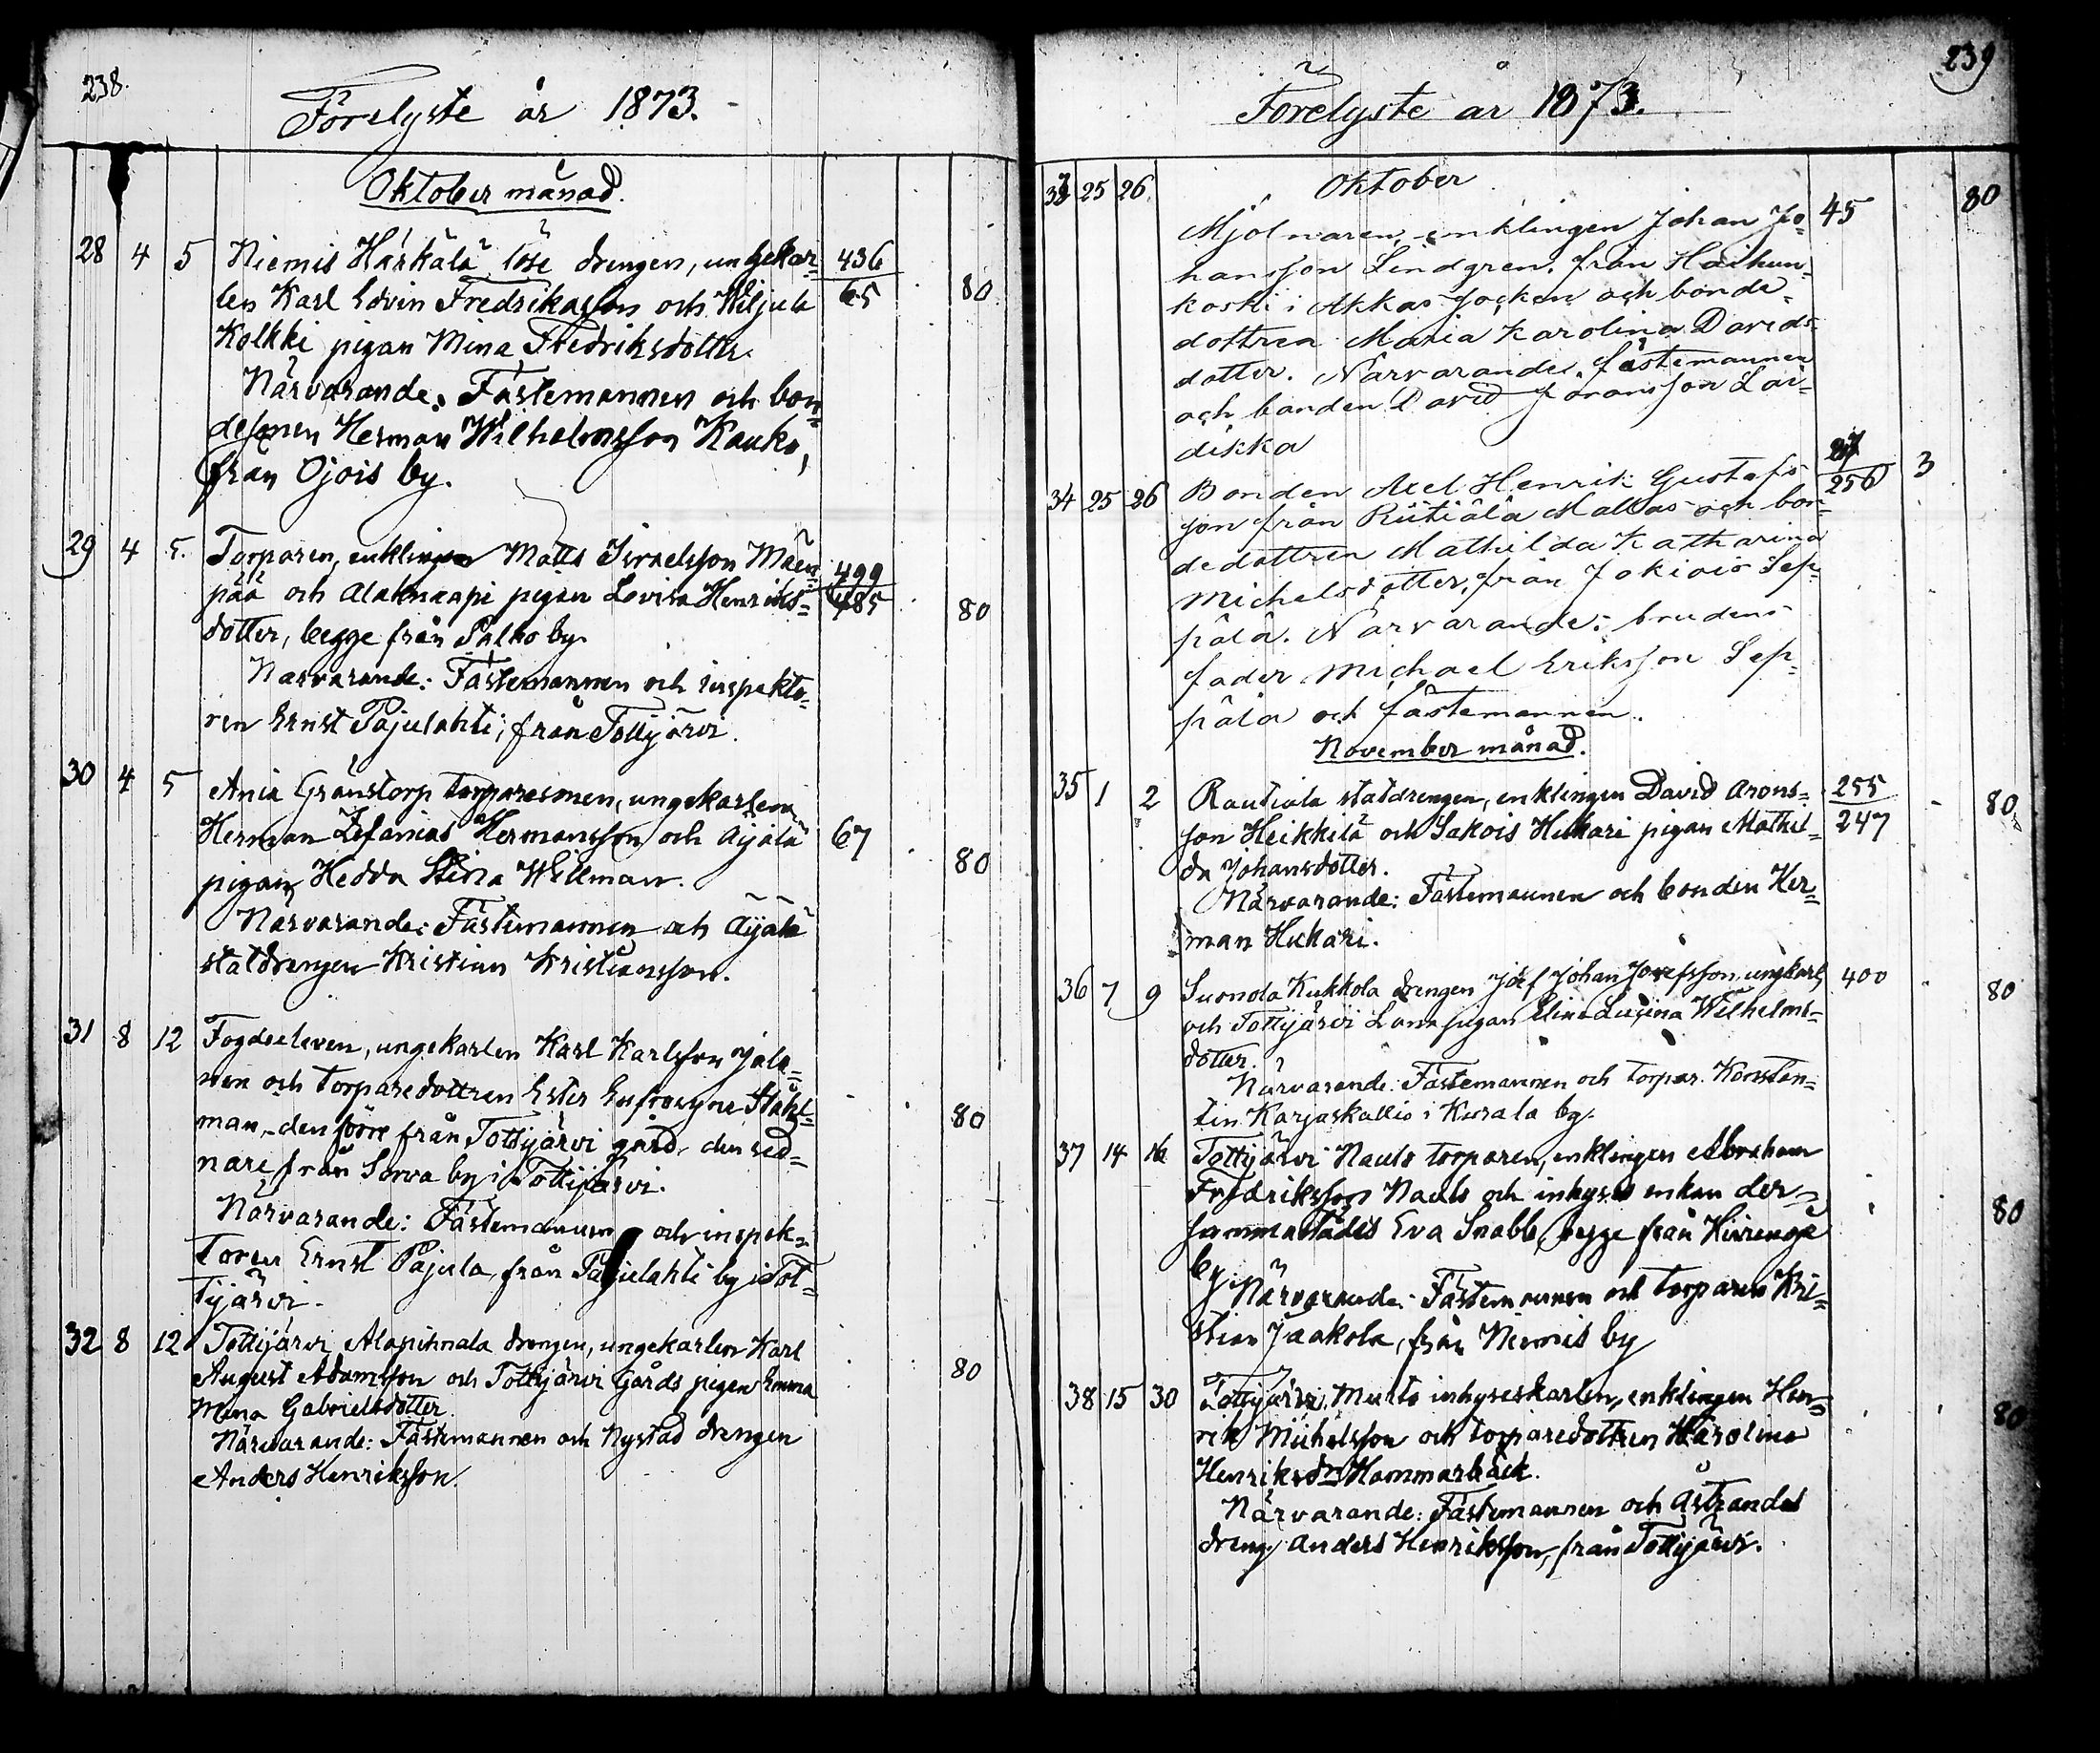 238.
Förelyste år 1873.
Oktober månad.
28 4 5 Niemis Härkälä löse drengen, ungekar= 436
len Karl Edvin Fredriksson och Wiljula 65 80
Kolkki pigan Mina Fredriksdotter.
Närvarande: Fästemannen och bon=
desonen Herman Wilhelmsson Kauko,
från Ojois by.
29 4 5. Torparen, enklingen Matts Israelsson Mäen= 499
pää och Alaknaapi pigan Lovisa Henriks= 485 80
dotter, begge från Palho by.
Närvarande: Fästemannen och inspekto=
ren Ernst Pajulahti, från Tottijärvi.
30 4 5 Ania Gränstorp torparesonen, ungekarlen
Herman Zefanias Hermansson och Äijälä 67 80
pigan Hedda Stina Willman.
Närvarande: Fästemannen och Äijälä
statdrengen Kristian Kristiansson.
31 8 12 Fogdeeleven, ungekarlen Karl Karlsson Jala=
nen och torparedottren Ester Eufrosyne Ståhl= 80
man, den förre från Tottijärvi gård, den sed=
nare från Sorva by i Tottijärvi.
Närvarande: Fästemannen och inspek=
toren Ernst Pajula, från Pajulahti by i Tot=
tijärvi.
32 8 12 Tottijärvi Alapihnala drengen, ungekarlen Karl
August Adamsson och Tottijärvi Gårds pigan Emma 80
Mina Gabrielsdotter.
Närvarande: Fästemannen och Nystad drengen
Anders Henriksson.
239
Förelyste år 1873.
33 25 26. Oktober 80
Mjölnaren, enklingen Johan Jo= 45
hansson Lindgren, från Haihun=
koski i Akkas socken och bonde=
dottren Maria Karolina Davids=
dotter. Närvarande: fästemannen
och bonden David Joransson Lai=
dikka
34 25 26 Bonden Axel Henrik Gustafs= 87 3
son från Riitiälä Mallas och bon= 256
dedottren Mathilda Katharina
Michelsdotter, från Jokiois Sep=
pälä. Närvarande: brudens
fader Michael Eriksson Sep=
pälä och fästemannen.
November månad.
35 1 2 Rautiala statdrengen, enklingen David Arons= 255 80
son Heikkilä och Sakois Hukari pigan Mathil= 247
da Johansdotter.
Närvarande: Fästemannen och bonden Her=
man Hukari.
36 7 9 Suonola Kukkola drengen Josef Johan Josefsson, ungkarl, 400 80
och Tottijärvi pigan Elina Lusina Wilhelms=
dotter.
Närvarande: Fästemannen och torpar. Konstan=
tin Karjaskallio i Kurala by.
37 14 16 Tottijärvi Nauls torparen, enklingen Abraham
Fredriksson Nauls och inhyses enkan der= 80
sammastädes Eva Snabb, begge från Hirvenoja
by.
Närvarande: Fästemannen och torparen Kri=
stian Jaakola, från Niemis by
38 15 30 Tottijärvi, Murto inhyseskarlen, enklingen Hen=
rik Michelsson och torparedottren Karolina 80
Henriksdr Hammarbäck.
Närvarande: Fästemannen och Åstrandes
dreng Anders Henriksson, från Tottijärvi.